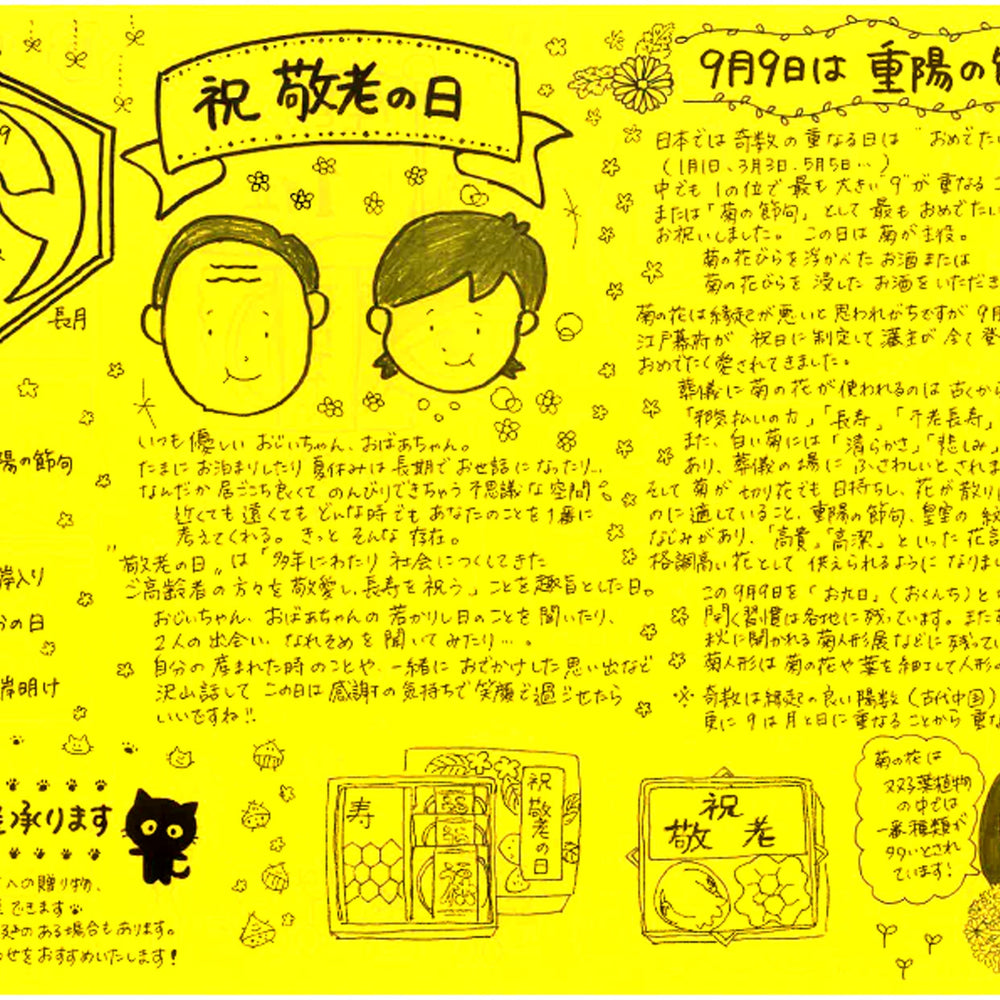 祝 敬老の日
いつも優しい おじいちゃん、おばあちゃん。
たまに お泊まりしたり 夏休みは 長期で お世話になったり…
なんだか 居ごこち良くて のんびりできちゃう 不思議な空間。
近くても 遠くても どんな時でも あなたのことを 1番に
考えてくれる。 きっと そんな 存在。
"敬老の日"は「多年にわたり 社会につくしてきた
ご高齢者の方々を 敬愛し、長寿を祝う」ことを趣旨とした日。
おじいちゃん、おばあちゃんの 若かりし日のことを 聞いたり、
2人の出会い、なれそめを 聞いてみたり…。
自分の 産まれた時のことや、一緒に おでかけした思い出など
沢山話して この日は 感謝の気持ちで 笑顔で過ごせたら
いいですね!!
長月
陽の節句
岸入り
分の日
岸明け
承ります
への贈り物、
できます
のある場合もあります。
せをおすすめいたします!
寿
祝敬老の日
祝
敬老
9月9日は 重陽の
日本では 奇数の重なる日は "おめでた
(1月1日、3月3日、5月5日…)
中でも 1の位で 最も 大きい"9"が重なる
または「菊の節句」として 最も おめでたい
お祝いしました。 この日は 菊が主役。
菊の花びらを浮かべた お酒または
菊の花びらを 浸した お酒をいただき
菊の花は縁起が悪いと 思われがちですが 9月
江戸幕府が 祝日に制定して 藩主が 全て 登
おめでたく愛されてきました。
葬儀に 菊の花が使われるのは 古くから
「邪気払いの力」「長寿」「不老長寿」
また、白い菊には「清らかさ」「悲しみ」
あり、葬儀の場に ふさわしいとされま
そして 菊が 切り花でも 日持ちし、花が散り
のに適していること、重陽の節句、皇室の
なじみがあり、「高貴」「高潔」といった 花言
格調高い花として 供えられるようになりまし
この9月9日を「お九日」(おくんち)と
開く習慣は各地に残っています。また
秋に開かれる菊人形展などに残ってい
菊人形は 菊の花や葉を細工して人形の
※ 奇数は縁起の良い陽数 (古代中国)
更に 9は 月と日に重なることから 重な
菊の花は
双子葉植物
の中では
一番種類が
多いとされ
ています!